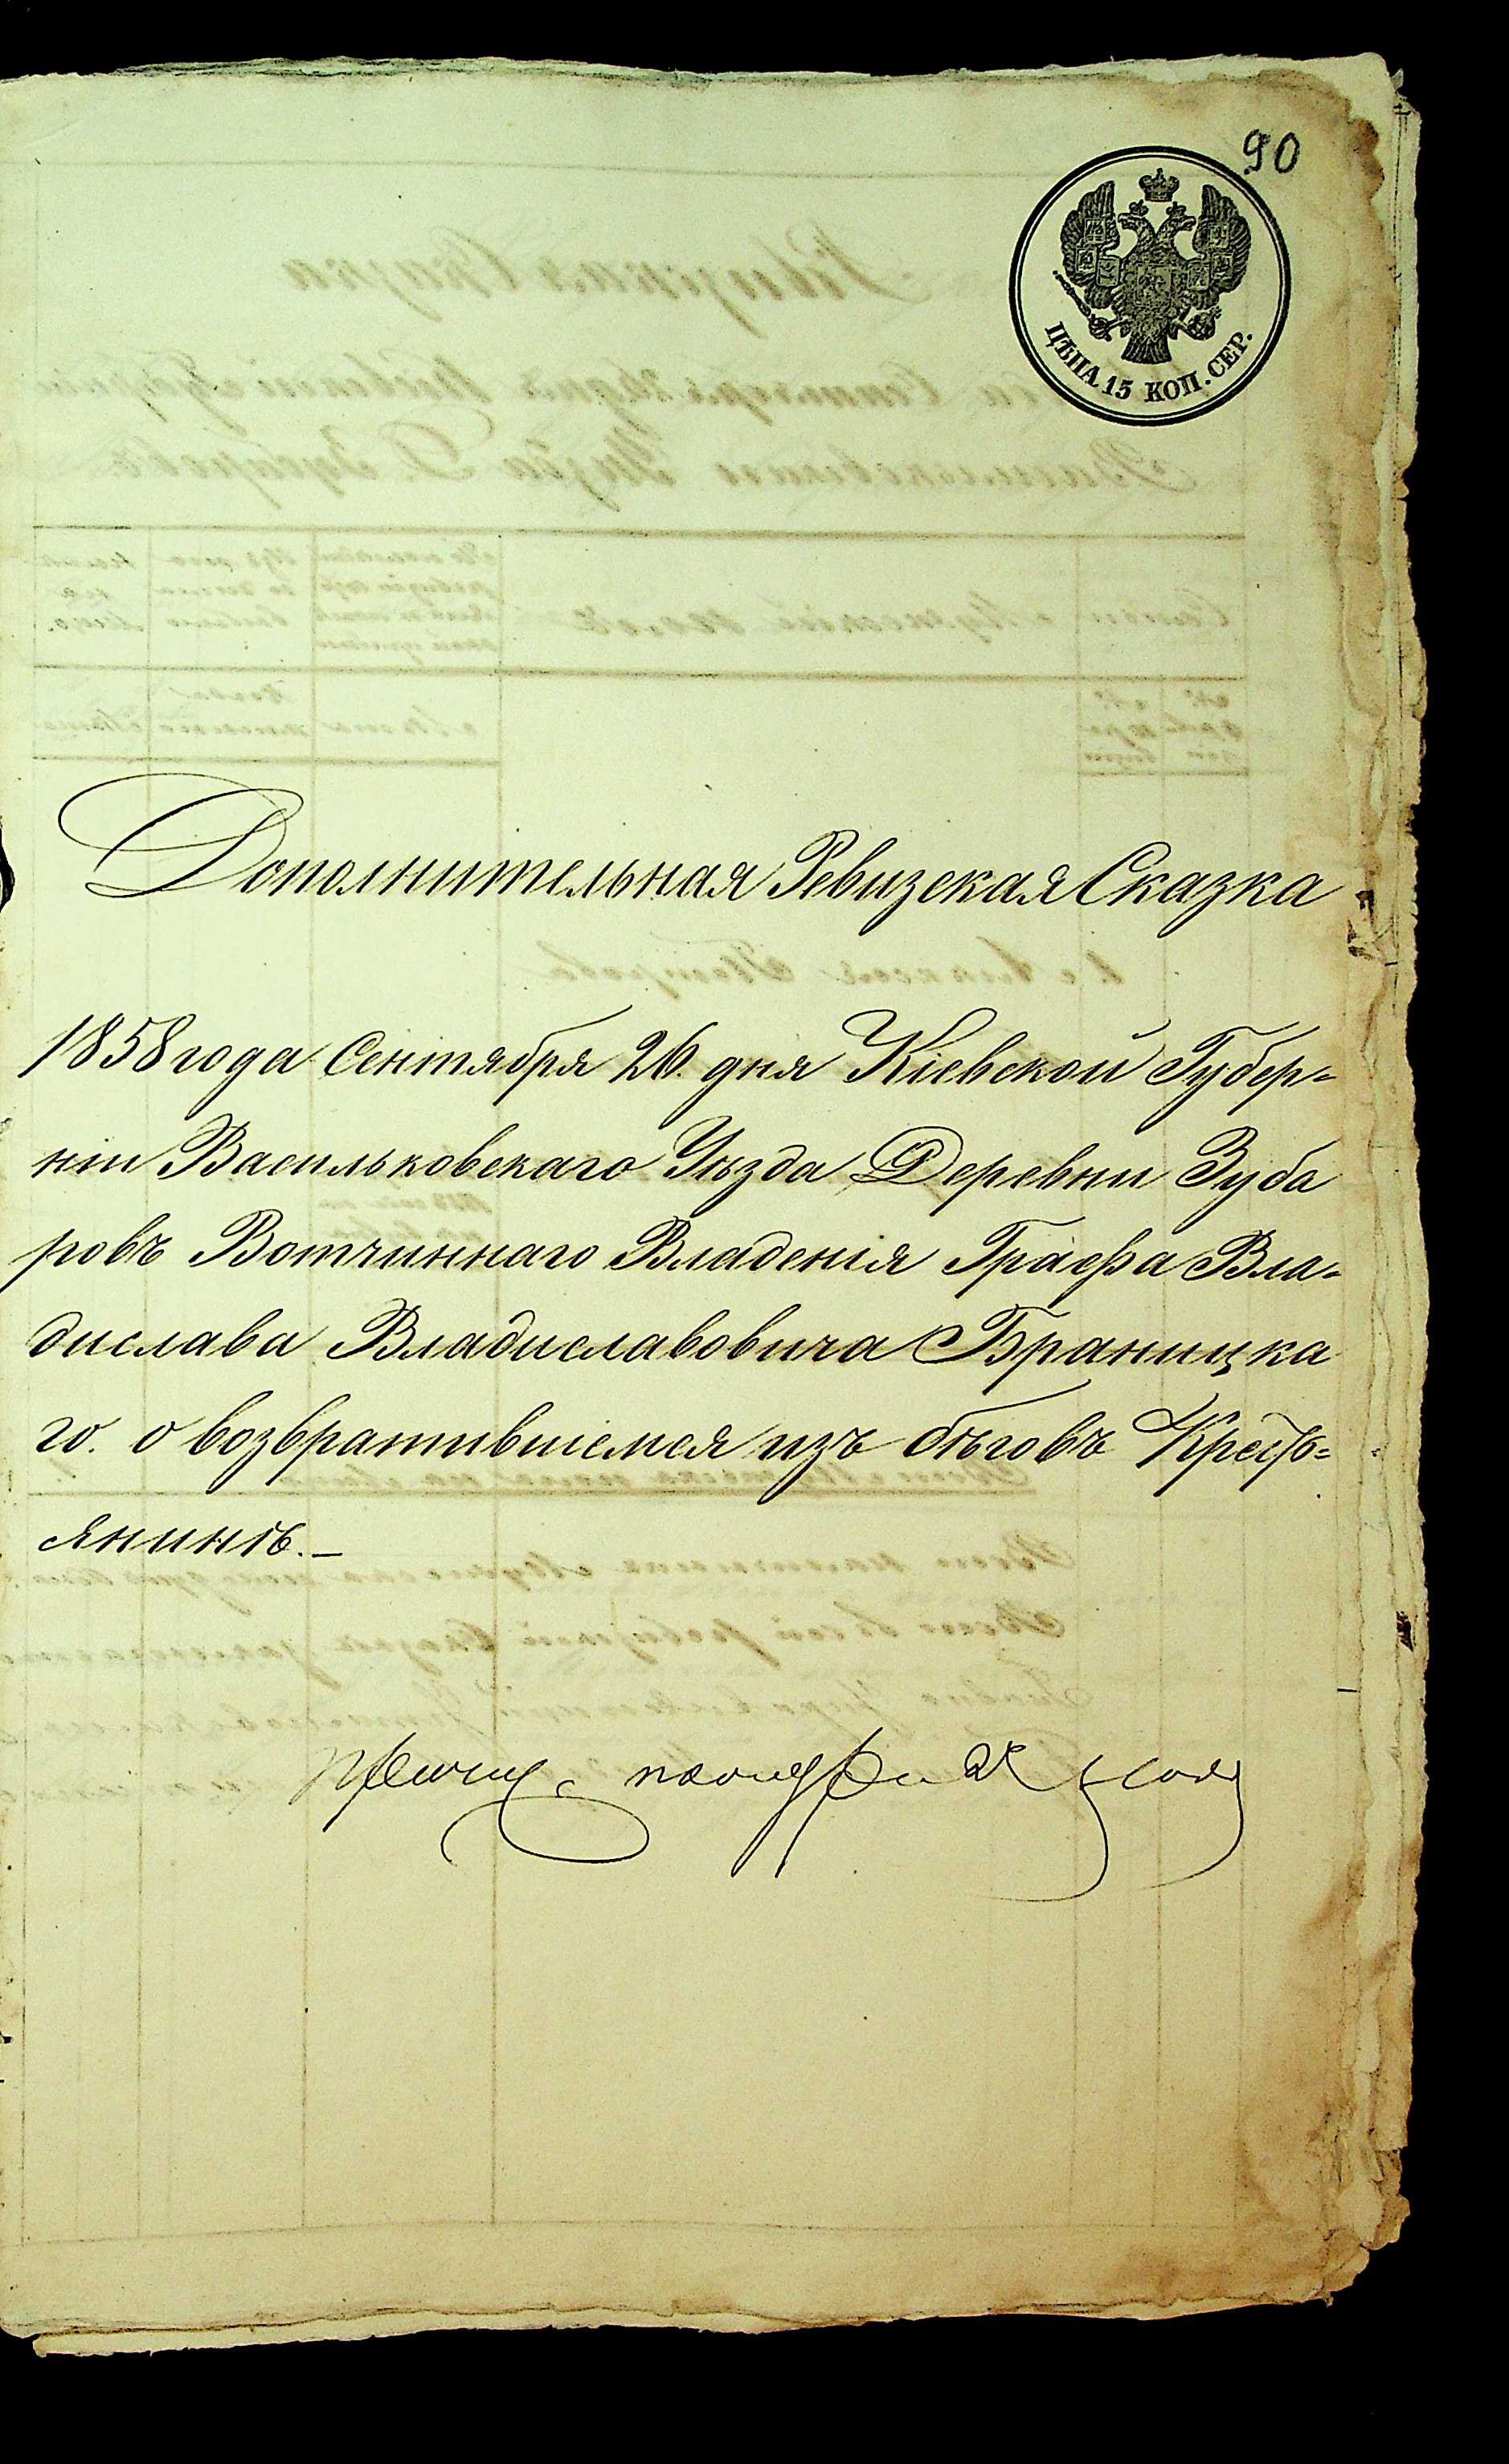 90
ЦѢНА 15 КОП. СЕР.
Дополнительная Ревизская Сказка
1858 года Сентября 26. дня Кіевской Губер-
ніи Васильковскаго Уѣзда Деревни Зуба
ровъ Вотчиннаго Владенія Графа Вла-
дислава Владиславовича Браницка
го. о возвратившемся изъ бѣговъ Крест-
янинѣ.